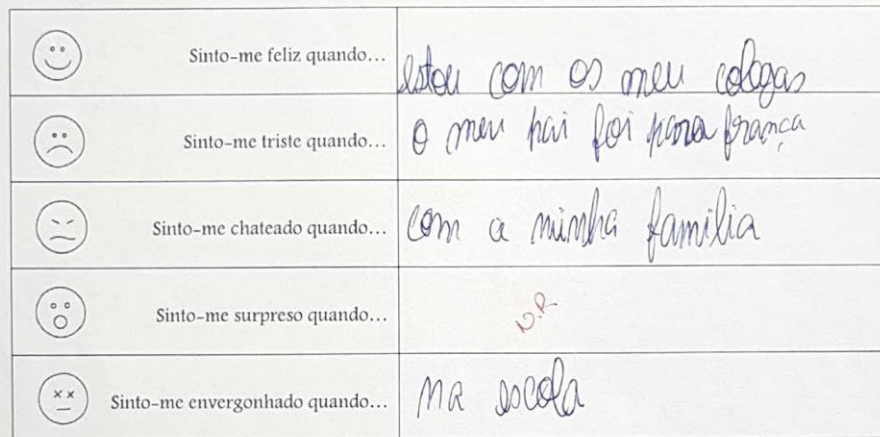 Sinto-me feliz quando... estou com os meu colegas
Sinto-me triste quando... o meu pai foi para frança
Sinto-me chateado quando... com a minha familia
Sinto-me surpreso quando... N.R
Sinto-me envergonhado quando... na escola